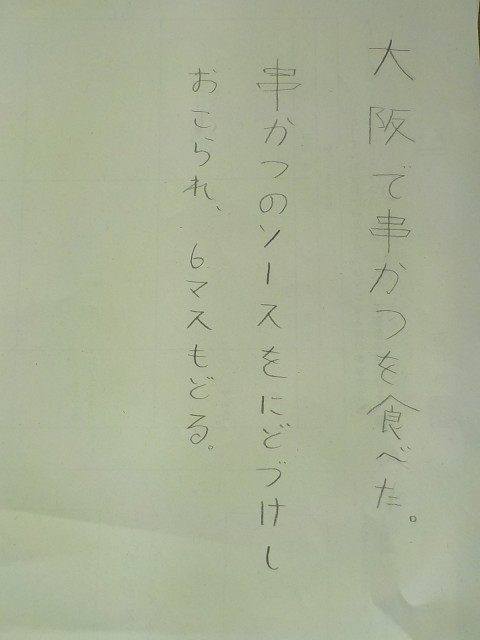 大阪で串かつを食べた。
串かつのソースをにどづけし
おこられ、6マスもどる。